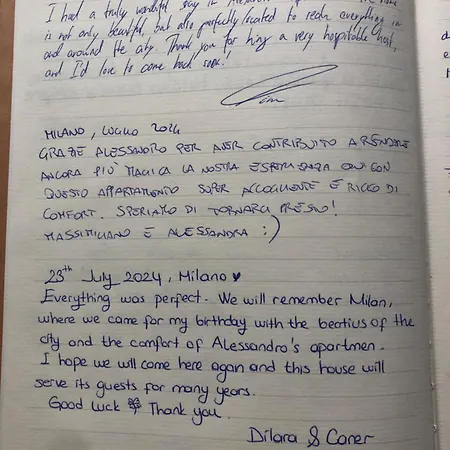 I had a truly wonderful stay in Alessandro's
is not only beautiful, but also perfectly located to reach everything in
and around the city. Thank you for being a very hospitable host,
and I'd love to come back soon!
MILANO, LUGLIO 2024
GRAZIE ALESSANDRO PER AVER CONTRIBUITO A RENDERE
ANCORA PIÙ MAGICA LA NOSTRA ESPERIENZA QUI CON
QUESTO APPARTAMENTO SUPER ACCOGLIENTE E RICCO DI
COMFORT. SPERIAMO DI TORNARCI PRESTO!
MASSIMILIANO E ALESSANDRA :)
23th July 2024, Milano ♥
Everything was perfect. We will remember Milan,
where we came for my birthday with the beatius of the
city and the comfort of Alessandro's apartmen.
I hope we will come here again and this house will
serve its guests for many years.
Good luck & Thank you.
Dilara & Caner